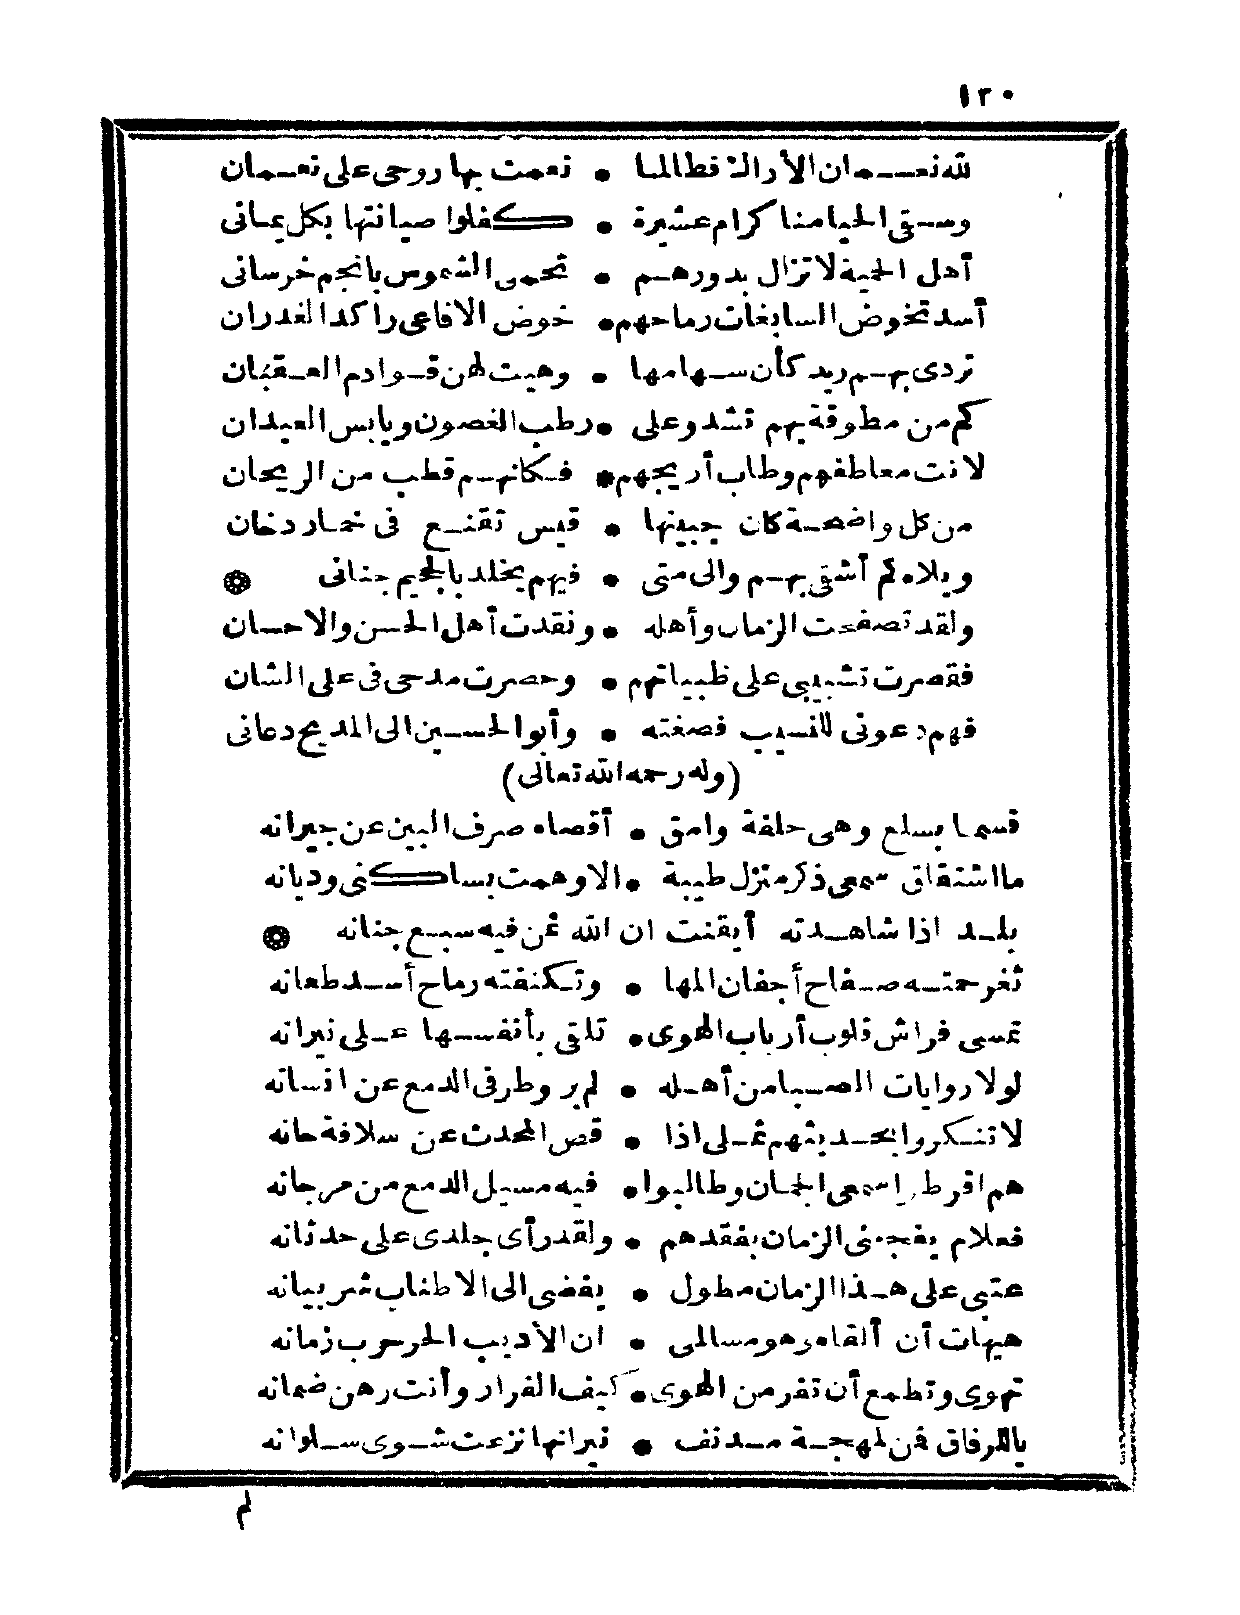 ١٣٠
لله نعمان الأراك فطالما • نعمت بها روحى على نعمان
وسقى الحيا منا كرام عشيرة • كفلوا صيانتها بكل يمانى
أهل الحمية لا تزال بدورهم • تحمى الشموس بانجم خرسانى
أسد تخوض السابغات رماحهم • خوض الافاعى راكد الغدران
تردى بهم ربد كأن سهامها • وهبت لهن قوادم العقبان
كم من مطوقة بهم تشدو على • رطب الغصون ويابس العيدان
لانت معاطفهم وطاب أريجهم • فكانهم قطب من الريحان
من كل واضحة كان جبينها • قبس تقنع فى خمار دخان
ويلاه كم أشقى بهم والى متى • فيهم يخلد بالجحيم جنانى
ولقد تصفحت الزمان وأهله • ونقدت أهل الحسن والاحسان
فقصرت تشبيبى على ظبياتهم • وحصرت مدحى فى على الشان
فهم دعونى للنسيب فصغته • وأبو الحسين الى المديح دعانى
(وله رحمه الله تعالى)
قسما بسلع وهى حلفة وامق • أقصاه صرف البين عن جيرانه
ما اشتقاق سمعى ذكر منزل طيبة • الا وهمت بساكنى وديانه
بلد اذا شاهدته أيقنت ان الله ثمن فيه سبع جنانه
ثغر حمته صفاح أجفان المها • وتكنفته رماح أسد طعانه
تمسى فراش قلوب أرباب الهوى • تلقى بأنفسها على نيرانه
لولا روايات الصبا من أهله • لم يرو طرفى الدمع عن انسانه
لا تنكروا بحديثهم ثملى اذا • قص المحدث عن سلافة حانه
هم اقرطوا سمعى الجمان وطالبوا • فيه مسيل الدمع من مرجانه
فعلام يفجعنى الزمان بفقدهم • ولقد رأى جلدى على حدثانه
عتبى على هذا الزمان مطول • يفضى الى الاطناب شرح بيانه
هيهات أن ألقاه وهو مسالمى • ان الأديب الحر حرب زمانه
تهوى وتطمع أن تفر من الهوى • كيف الفرار وأنت رهن ضمانه
يا للرفاق فمن لمهجة مدنف • نيرانها نزعت شوى سلوانه
لم